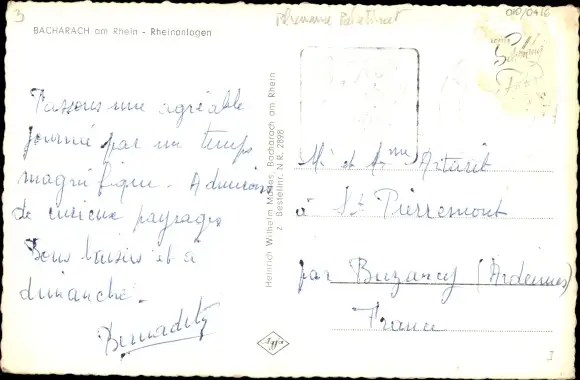 3
010/0416
BACHARACH am Rhein - Rheinanlagen
Passons une agréable
journée par un temps
magnifique. Admirons
de curieux paysages
Bons baisers et à
dimanche.
Bernadette
Heinrich Wilhelm Bacharach am Rhein
Bestellnr. N R. 2898
Mr et Mme
à St Pierremont
par Buzancy (Ardennes)
France
Agfa
3